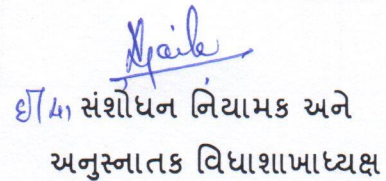 ઈ/ચા સંશોધન નિયામક અને
અનુસ્નાતક વિધાશાખાધ્યક્ષ